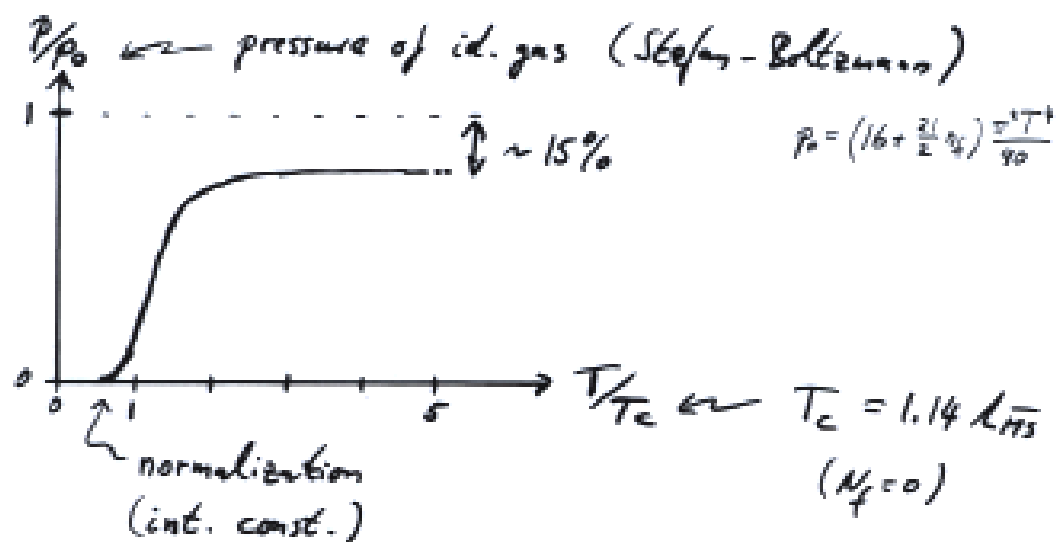 P/P₀ ← pressure of id. gas (Stefan-Boltzmann)
1
~ 15%
p₀ = (16 + 21/2 n_f) π²T⁴/90
0
0 1 5
T/Tc ← Tc = 1.14 Λ_MS
(N_f=0)
normalization
(int. const.)